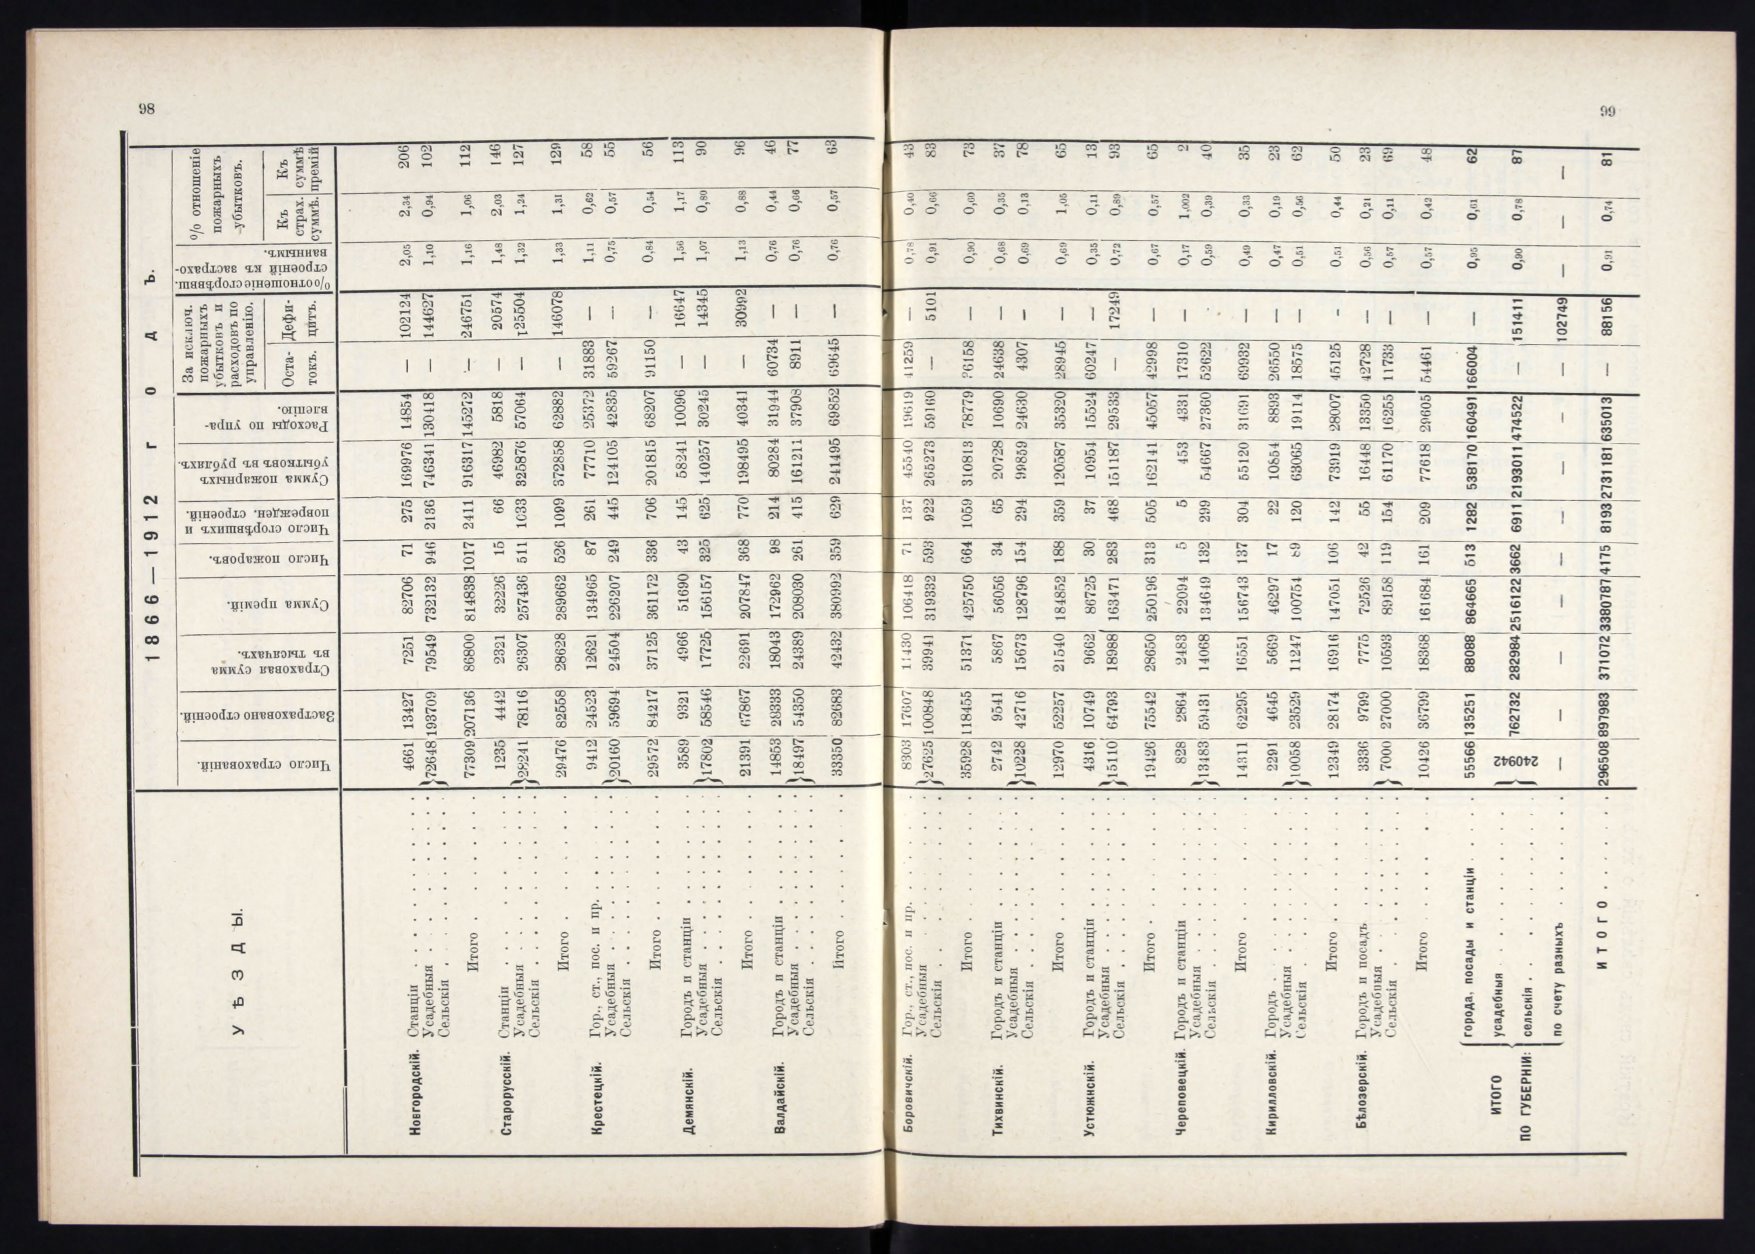 98
99
1866—1912 годъ.
УѢЗДЫ.
Число страхованій.
Застраховано строеній.
Страховая сумма въ тысячахъ.
Сумма премій.
Число пожаровъ.
Число сгорѣвшихъ и поврежден. строеній.
Сумма пожарныхъ убытковъ въ рубляхъ.
Расходы по управленію.
За исключ. пожарныхъ убытковъ и расходовъ по управленію.
Остатокъ.
Дефицитъ.
%отношеніе сгорѣвш. строеній къ застрахованнымъ.
% отношеніе пожарныхъ убытковъ.
Къ страх. суммѣ.
Къ суммѣ премій
Новгородскій. Станціи 4661 13427 7251 82706 71 275 169976 14854 — 102124 2,05 2,34 206
Усадебныя
Сельскія } 72648 193709 79549 732132 946 2136 746341 130418 — 144627 1,10 0,94 102
Итого 77309 207136 86800 814838 1017 2411 916317 145272 — 246751 1,16 1,06 112
Старорусскій. Станціи 1235 4442 2321 32226 15 66 46982 5818 — 20574 1,48 2,03 146
Усадебныя
Сельскія } 28241 78116 26307 257436 511 1033 325876 57064 — 125504 1,32 1,24 127
Итого 29476 82558 28628 289662 526 1099 372858 62882 — 146078 1,33 1,31 129
Крестецкій. Гор., ст., пос. и пр. 9412 24523 12621 134965 87 261 77710 25372 31883 — 1,11 0,62 58
Усадебныя
Сельскія } 20160 59694 24504 226207 249 445 124105 42835 59267 — 0,75 0,57 55
Итого 29572 84217 37125 361172 336 706 201815 68207 91150 — 0,84 0,54 56
Демянскій. Городъ и станціи 3589 9321 4966 51690 43 145 58241 10096 — 16647 1,56 1,17 113
Усадебныя
Сельскія } 17802 58546 17725 156157 325 625 140257 30245 — 14345 1,07 0,80 90
Итого 21391 67867 22691 207847 368 770 198495 40341 — 30992 1,13 0,88 96
Валдайскій. Городъ и станціи 14853 28333 18043 172962 98 214 80284 31944 60734 — 0,76 0,44 46
Усадебныя
Сельскія } 18497 54350 24389 208030 261 415 161211 37908 8911 — 0,76 0,66 77
Итого 33350 82683 42432 380992 359 629 241495 69852 69645 — 0,76 0,57 63
Боровичскій. Гор., ст., пос. и пр. 8303 17607 11430 106418 71 137 45540 19619 41259 — 0,78 0,40 43
Усадебныя
Сельскія } 27625 100848 39941 319332 593 922 265273 59160 — 5101 0,91 0,66 83
Итого 35928 118455 51371 425750 664 1059 310813 78779 — 0,90 0,60 73
Тихвинскій. Городъ и станціи 2742 9541 5867 56056 34 65 20728 10690 24638 — 0,68 0,35 37
Усадебныя
Сельскія } 10228 42716 15673 128796 154 294 99859 24630 4307 — 0,69 0,13 78
Итого 12970 52257 21540 184852 188 359 120587 35320 28945 — 0,69 1,05 65
Устюжнскій. Городъ и станціи 4316 10749 9662 86725 30 37 10954 15524 60247 — 0,35 0,11 13
Усадебныя
Сельскія } 15110 64793 18988 163471 283 468 151187 29533 — 17249 0,72 0,89 93
Итого 19426 75542 28650 250196 313 505 162141 45057 42998 — 0,67 0,57 65
Череповецкій. Городъ и станціи 828 2864 2483 22094 5 5 453 4331 17310 — 0,17 1,002 2
Усадебныя
Сельскія } 13483 59431 14068 134649 132 299 54667 27360 52622 - 0,59 0,39 40
Итого 14311 62295 16551 156743 137 304 55120 31691 69932 — 0,49 0,33 35
Кирилловскій. Городъ 2291 4645 5669 46297 17 22 10854 8893 26550 — 0,47 0,19 23
Усадебныя
Сельскія } 10058 23529 11247 100754 89 120 63065 19114 18575 — 0,51 0,56 62
Итого 12349 28174 16916 147051 106 142 73919 28007 45125 - 0,51 0,44 50
Бѣлозерскій. Городъ и посадъ 3336 9799 7775 72526 42 55 16448 13350 42728 — 0,56 0,21 23
Усадебныя
Сельскія } 7000 27000 10593 89158 119 154 61170 16255 11733 — 0,57 0,11 69
Итого 10426 36799 18368 161684 161 209 77618 29605 54461 — 0,57 0,42 48
ИТОГО ПО ГУБЕРНІИ: города, посады и станціи 55566 135251 88088 864665 513 1282 538170 160491 166004 — 0,95 0,61 62
усадебныя
сельскія } 240942 762732 282984 2516122 3662 6911 2193011 474522 — 151411 0,90 0,78 87
по счету разныхъ — — — — — — — — — 102749 — — —
ИТОГО 296508 897983 371072 3380787 4175 8193 2731181 635013 — 88156 0,91 0,74 81